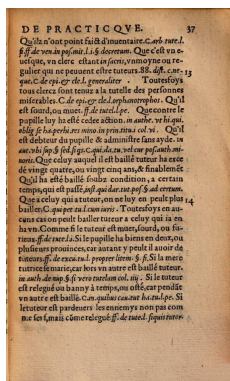 DE PRACTICQVE. 37
Qu'ilz n'ont point faict d'inuentaire. C. arb. tute. l.
fi. ff. de ven. in pos. mit. l. i. § decretum. Que c'est vn e-
uesque, vn clerc estant in sacris, vn moyne ou re-
gulier qui ne peuuent estre tuteurs. 88. dist. c. ne-
que. C. de epi. & cle. l. generaliter. Toutesfoys 13
tous clercz sont tenuz a la tutelle des personnes
miserables. C. de epi. & cle. l. orphanotrophos. Qu'il
est sourd, ou muet. ff. de tutel. l. pe. Que contre le
pupille luy ha esté cedee action. in authe. vt hi qui.
oblig. se ha. perhi. res mino. in prin. titu. col. vi. Qu'il
est debteur du pupille & administre sans ayde. in
Que celuy auquel il est baillé tuteur ha exce
dé vingt quatre, ou vingt cinq ans, & finablemẽt
Qu'il ha esté baillé soubz condition, a certain
temps, qui est passé, inst. qui dar. tut. pos. § ad certum.
Que a celuy qui a tuteur, on ne luy en peult plus 14
bailler. C. qui pe. tu. l. cum iuris. Toutesfoys en au-
cuns cas on peult bailler tuteur a celuy qui ia en
ha vn. Comme si le tuteur est muet, sourd, ou fu-
rieux. ff. de tute. l. Si le pupille ha biens en deux, ou
plusieurs prouinces, car autant y peult il auoir de
tuteurs. ff. de excu. tu. l. propter litem. §. fi. Si la mere
tutrice se marie, car lors vn autre est baillé tuteur.
in auth. de nup. § si vero tutelam col. iiij. Si le tuteur
est relegué ou banny à temps, ou osté, car pendãt
vn autre est baillé. C. in. quibus cau. tut. ha. tu. l. pe. Si
le tuteur est par deuers les ennemys non pas com
me serf, mais cõme relegué ff. de tute. l. si quis tutor.